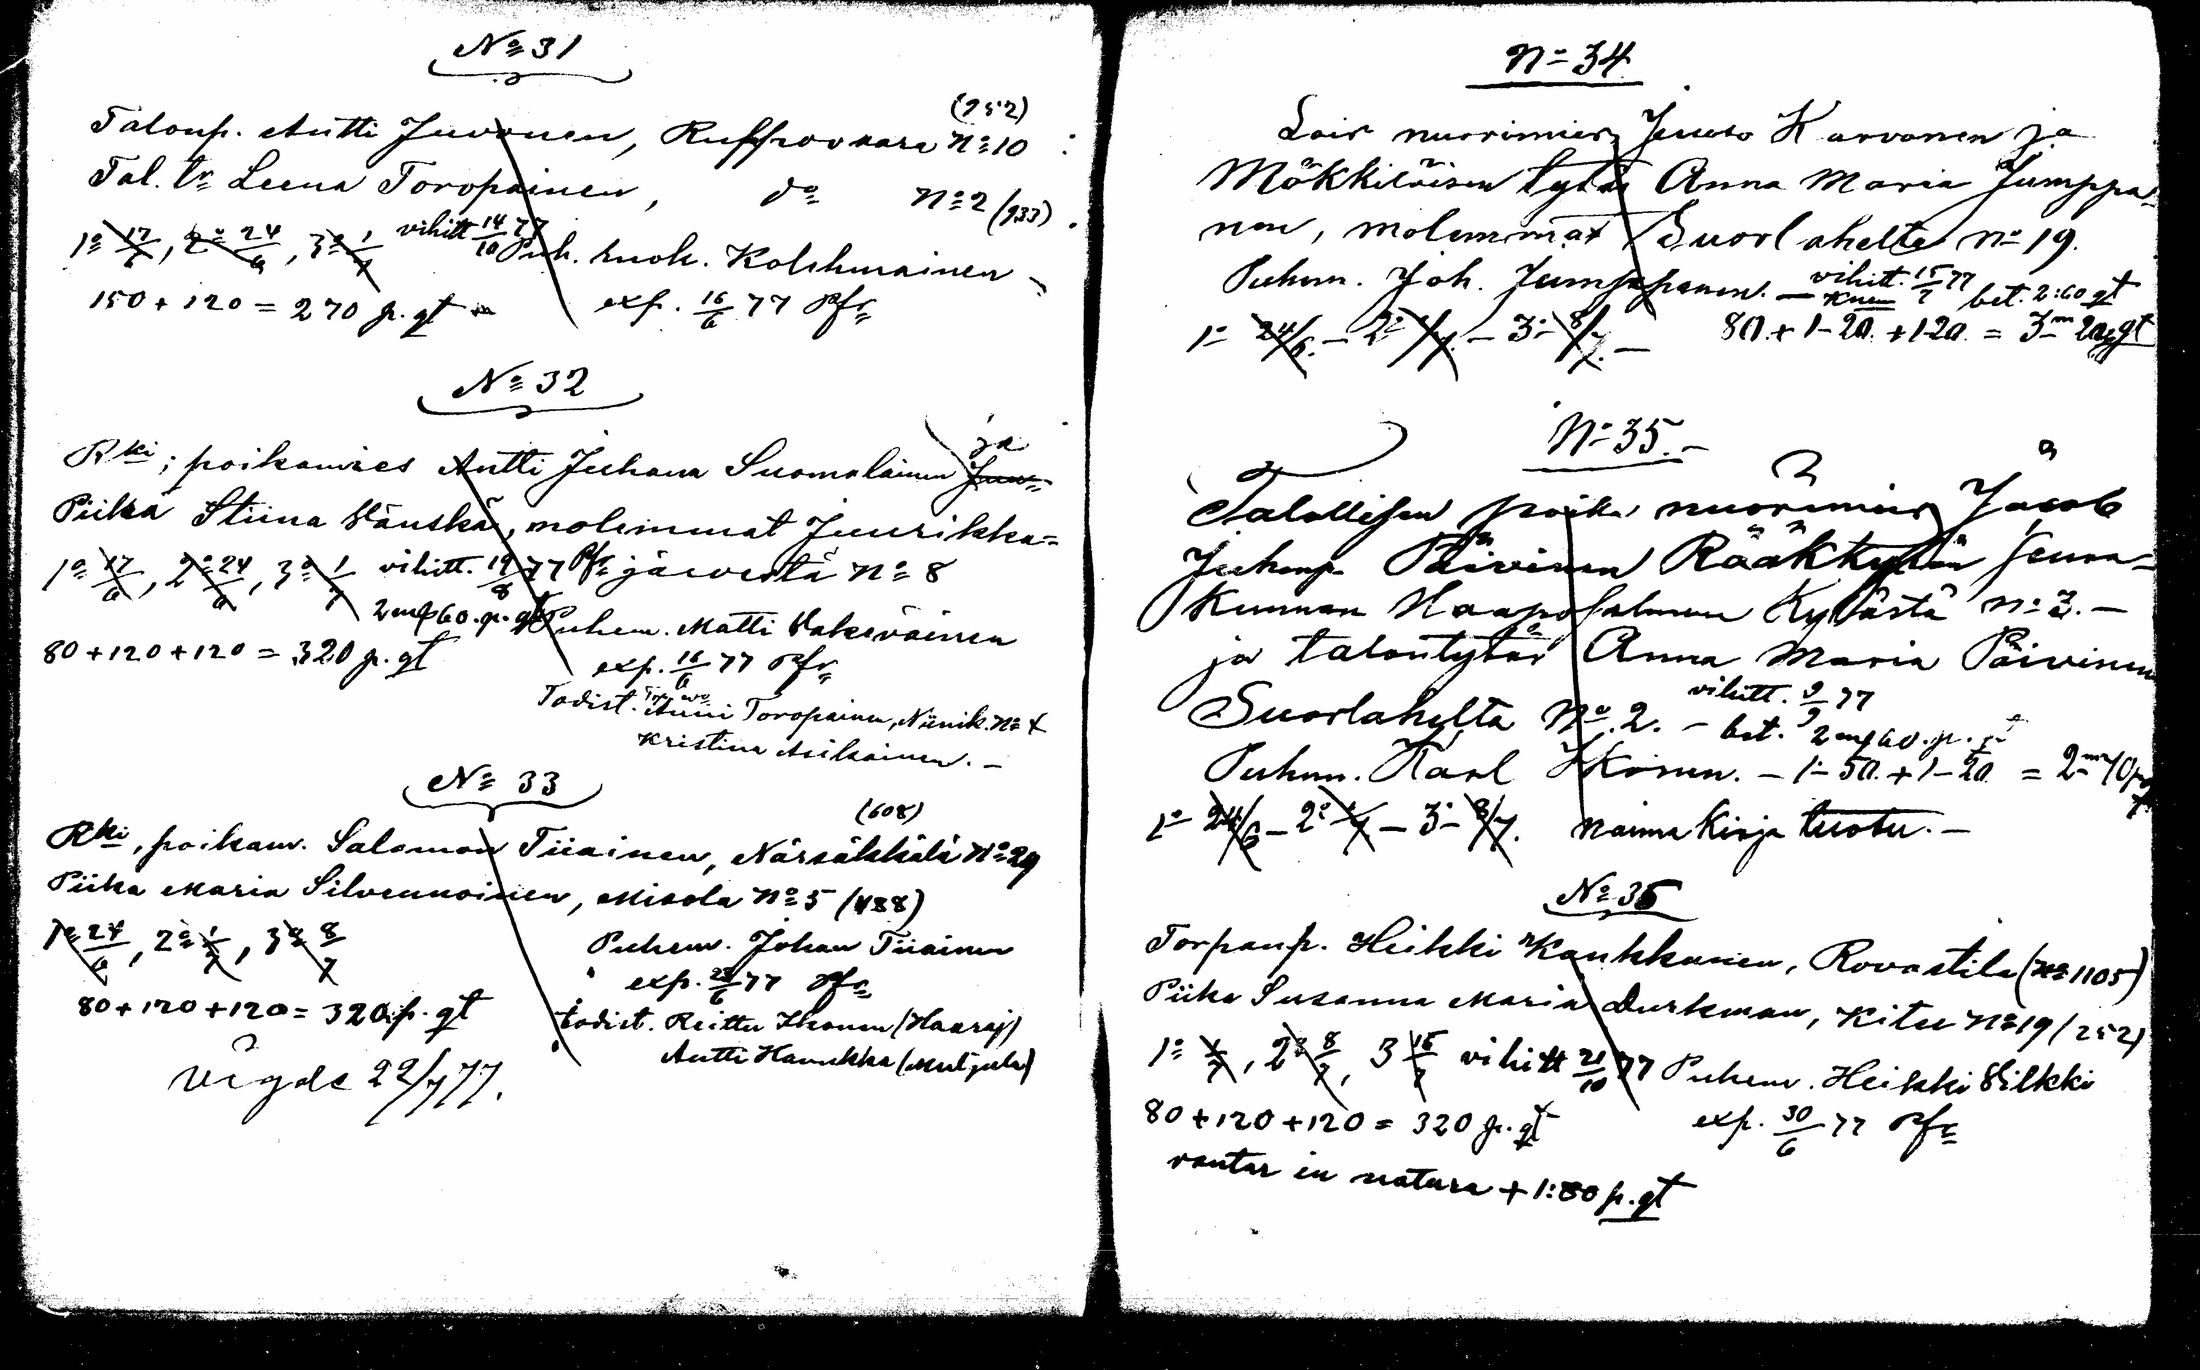 No 31
(252)
Taloup. Antti Juvonen, Ruppovaara No 10
Tal. tr Leena Toropainen, do No 2 (933).
1o 17/6, 2o 24/6, 3o 1/7 vihitt 14/10 77 Puh. huoh. Kolehmainen
150 + 120 = 270 p. gt exp. 16/6 77 Pfr
No 32
Rki; poikamies Antti Juhana Suomalainen ja
Piika Stiina Vänskä, molemmat Juurikka=
1o 17/6, 2o 24/6, 3o 1/7 vihitt. 19/8 77 Pfr järveltä No 8
2 mk 60. p. gt Puhem. Matti Väkeväinen
80 + 120 + 120 = 320 p. gt exp. 16/6 77 Pfr
Todist. Anni Toropainen, Niinik. No 4
Kristina Asikainen. –
No 33
(608)
Rki, poikam. Salomon Tiainen, Närsäkkälä No 29
Piika Maria Silvennoinen, Misola No 5 (488)
1o 24/6, 2o 1/7, 3o 8/7 Puhem. Johan Tiainen
exp. 23/6 77 Pfr
80 + 120 + 120 = 320 p. gt todist. Reittu Ikonen (Haaraj)
Antti Hanukka (Muljula)
Vigde 22/7 77.
No 34
Lois nuorimies Juuso Karvonen ja
Mökkiläisen tytär Anna Maria Jumppa-
nen, molemmat Suorlahelta No 19.
Puhm. Joh. Jumppanen. – vihitt. 15/7 77 bet. 2:60 gt
1o 24/6. – 2o 1/7. – 3o 8/7. – 80. + 1–20. + 1–20. = 3m 20 p gt
No 35. –
Talollisen poika nuorimies Jacob
Juhanp. Päivinen Rääkkylän seura=
kunnan Haapasalmen Kylästä No 3. –
ja talontytär Anna Maria Päivinen
Suorlahelta No 2. – vihitt. 9/9 77
bet. 2 mk 60. p. gt
Puhm. Karl Ikonen. – 1–50. + 1–20. = 2m 70 p
1o 24/6 – 2o 1/7 – 3o 8/7. naima Kirja tuotu. –
No 36
Torpanp. Heikki Kaukkanen, Rovastila (No 1105)
Piika Susanna Maria Durkman, Kitee No 19 (252)
1o 1/7, 2o 8/7, 3 15/7 vihitt 21/10 77 Puhem. Heikki Silkki
80 + 120 + 120 = 320 p. gt exp. 30/6 77 Pfr
vantar in natura + 1:80 p. gt